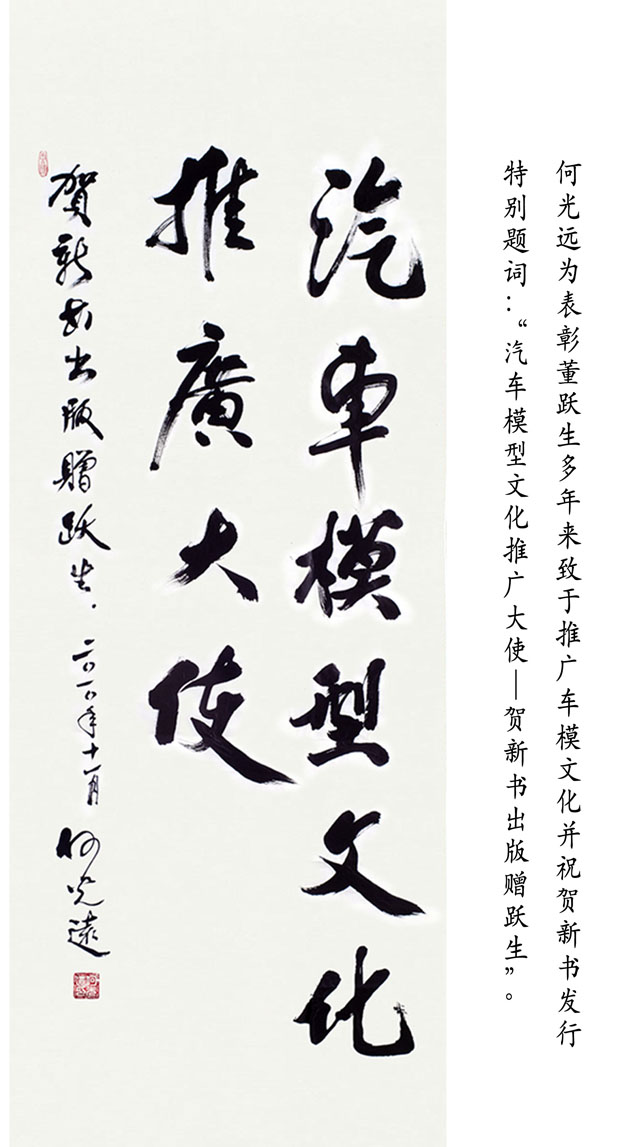 何光远为表彰董跃生多年来致于推广车模文化并祝贺新书发行
特别题词：“汽车模型文化推广大使—贺新书出版赠跃生”。
汽車模型文化
推廣大使
賀新书出版贈跃生，二〇一〇年十一月 何光遠